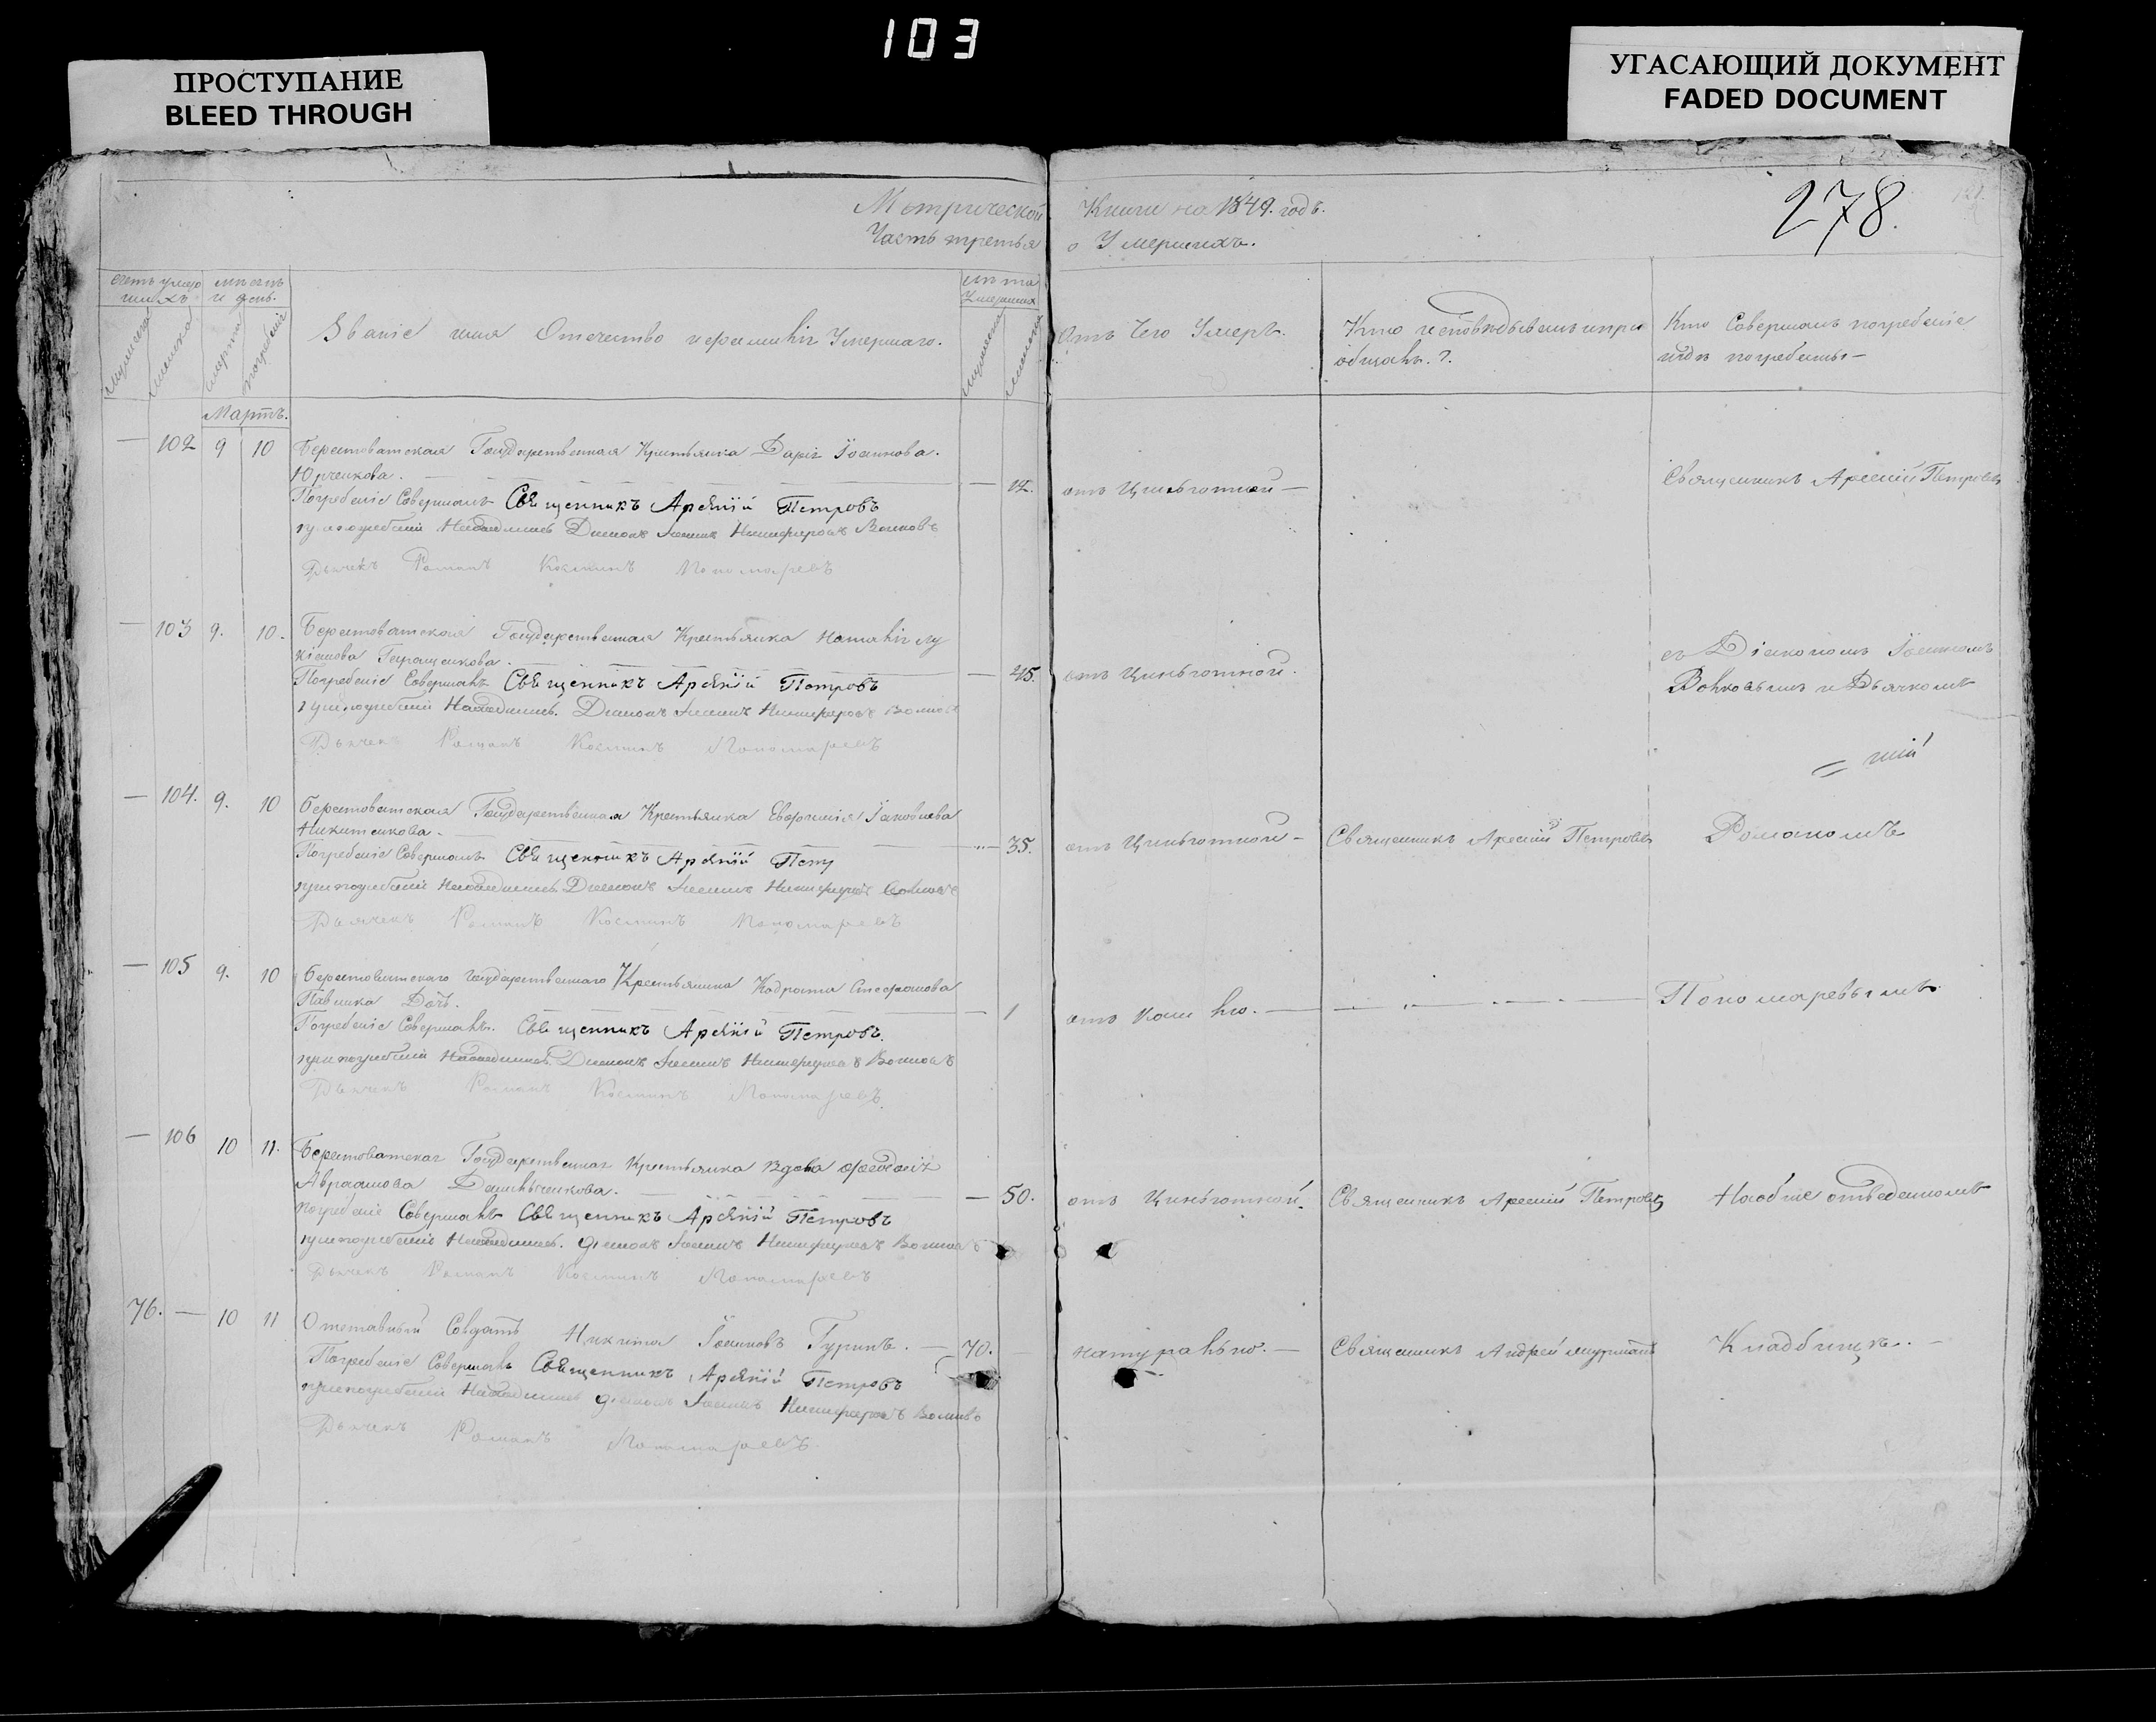 103
ПРОСТУПАНИЕ
BLEED THROUGH
УГАСАЮЩИЙ ДОКУМЕНТ
FADED DOCUMENT
278.
Метрической Книги на 1849. годъ.
Часть третья о Умершихъ.
Званіе имя Отечество и фамилія Умершаго.
Отъ Чего Умеръ.
Кто исповѣдывалъ и при
общалъ.
Кто Совершалъ погребеніе
и гдѣ погребены
мужеска
женска
смерти
погребенія
Мартъ.
102 9 10 Берестоватская Государственная Крестьянка Дарія Іоаннова.
Юрченкова. 12. отъ Цынготной Священникъ Арсеній Петровъ
Погребеніе Совершалъ Священникъ Арсеній Петровъ
при погребеніи Находились Діаконъ Іоаннъ Никифоровъ Волковъ
Дьячекъ Романъ Косминъ Пономаревъ
103 9. 10. Берестоватская Государственная Крестьянка Наталія Лу
кіанова Геращенкова. 45. отъ Цынготной. съ Діакономъ Іоанномъ
Волковымъ и Дьячкомъ
Погребеніе Совершалъ Священникъ Арсеній Петровъ
при погребеніи Находились. Діаконъ Іоаннъ Никифоровъ Волковъ
Дьячекъ Романъ Косминъ Пономаревъ
104. 9. 10 Берестоватская Государственная Крестьянка Евфимія Іаковлева
Никитенкова. 35. отъ Цынготной Священникъ Арсеній Петровъ Романомъ
Погребеніе Совершалъ Священникъ Арсеній Петр
при погребеніи Находились Діаконъ Іоаннъ Никифоровъ
Дьячекъ Романъ Косминъ Пономаревъ
105 9. 10 Берестоватскаго Государственнаго Крестьянина Кодрата Стефанова
Павлика Дочь. 1 отъ Кашлю. Пономаревымъ
Погребеніе Совершалъ. Священникъ Арсеній Петровъ.
при погребеніи Находились. Діаконъ Іоаннъ Никифоровъ Волковъ
Дьячекъ Романъ Косминъ Пономаревъ
106 10 11. Берестоватская Государственная Крестьянка Вдова Феодосія
Авраамова 50. отъ Цынготной. Священникъ Арсеній Петровъ На обще отведенномъ
Погребеніе Совершалъ Священникъ Арсеній Петровъ
при погребеніи Находились. Діаконъ Іоаннъ Никифоровъ Волковъ
Дьячекъ Романъ Косминъ Пономаревъ
76. 10 11 Отставный Солдатъ Никита Іоанновъ Гуринъ. 70. натурально. Священникъ Андрей Кладбищѣ.
Погребеніе Совершалъ Священникъ Арсеній Петровъ
при погребеніи Находились Діаконъ Іоаннъ Никифоровъ Волковъ
Дьячекъ Романъ Пономаревъ